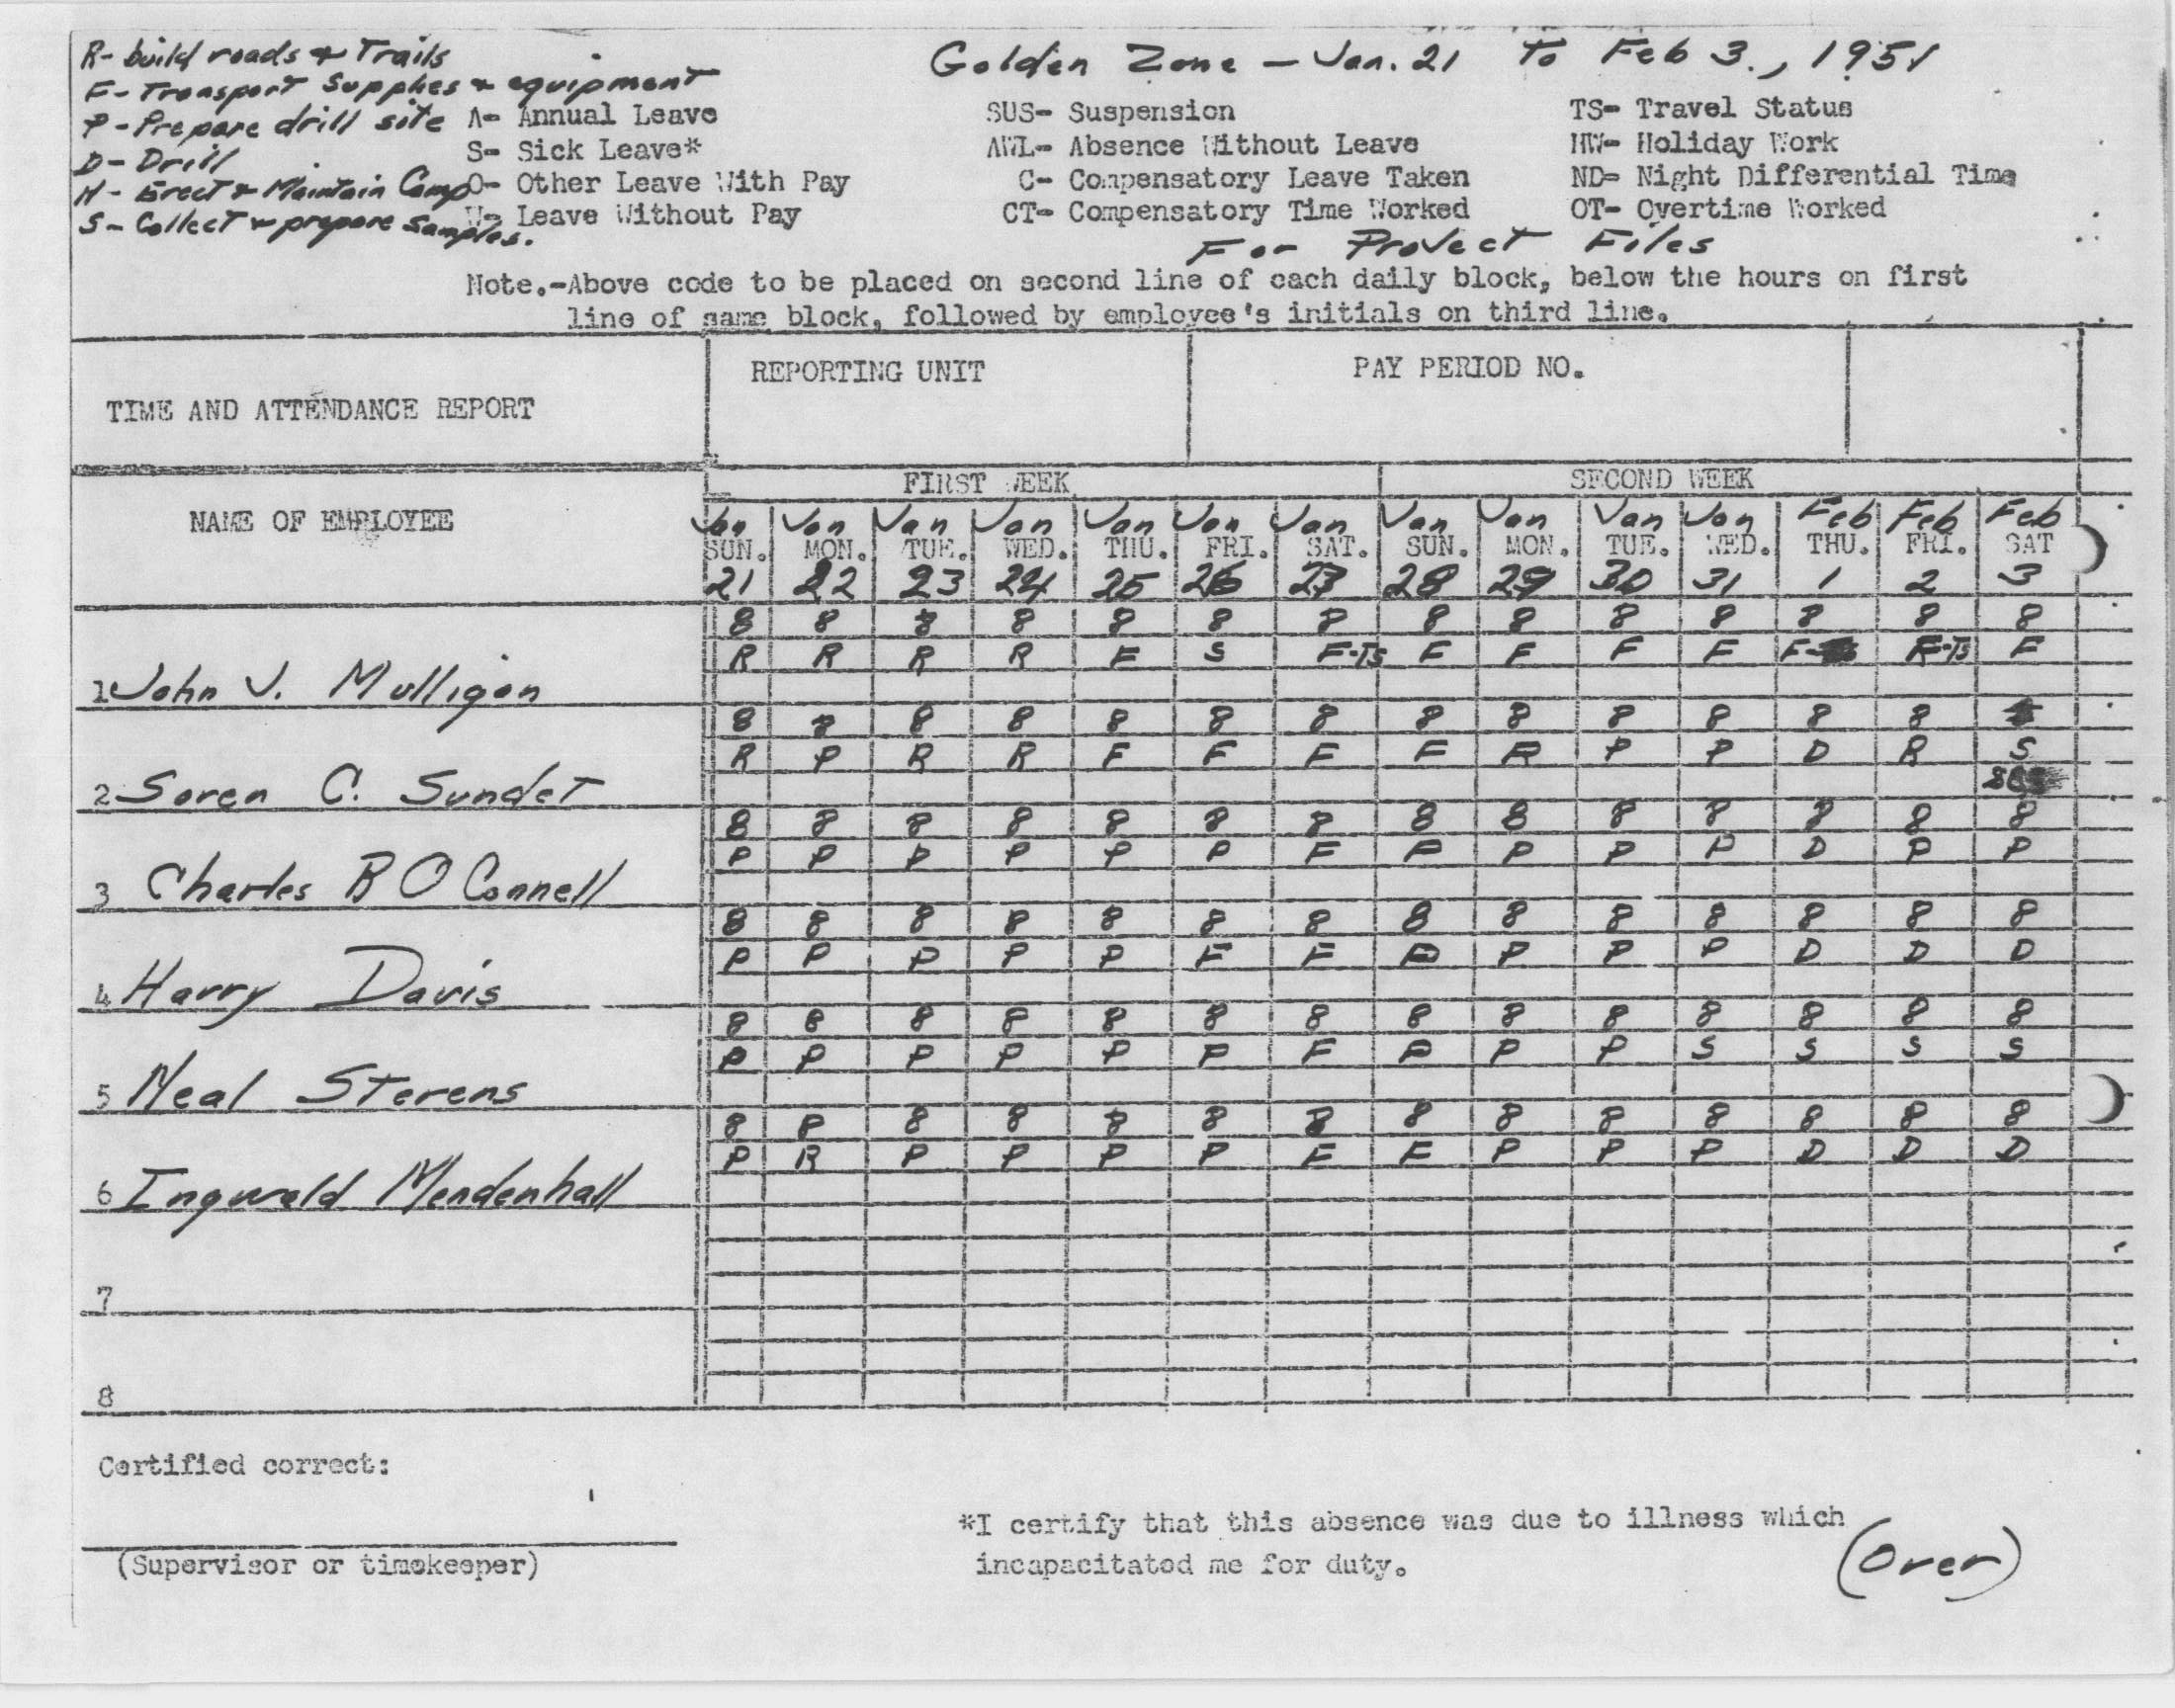 R- build roads & Trails
Golden Zone - Jan. 21 To Feb 3., 1951
F- Transport Supplies & equipment
P- Prepare drill site A- Annual Leave SUS- Suspension TS- Travel Status
D- Drill S- Sick Leave* AWL- Absence Without Leave HW- Holiday Work
H- Erect & Maintain Camp O- Other Leave With Pay C- Compensatory Leave Taken ND- Night Differential Time
S- Collect & prepare samples. W- Leave Without Pay CT- Compensatory Time Worked OT- Overtime Worked
For Project Files
Note.-Above code to be placed on second line of each daily block, below the hours on first
line of same block, followed by employee's initials on third line.
TIME AND ATTENDANCE REPORT REPORTING UNIT PAY PERIOD NO.
FIRST WEEK SECOND WEEK
NAME OF EMPLOYEE
Jan Jan Jan Jan Jan Jan Jan Jan Jan Jan Jan Feb Feb Feb
SUN. MON. TUE. WED. THU. FRI. SAT. SUN. MON. TUE. WED. THU. FRI. SAT
21 22 23 24 25 26 27 28 29 30 31 1 2 3
8 8 8 8 8 8 8 8 8 8 8 8 8 8
R R R R F S F-TS F F F F F F-TS F
1 John J. Mulligan
8 8 8 8 8 8 8 8 8 8 8 8 8
R P R R F F F F R P P D R S
2 Soren C. Sundet
8 8 8 8 8 8 8 8 8 8 8 8 8 8
P P P P P P F P P P D P P
3 Charles B O Connell
8 8 8 8 8 8 8 8 8 8 8 8 8 8
P P P P P F F P P P D D D
4 Harry Davis
8 8 8 8 8 8 8 8 8 8 8 8 8 8
P P P P P P F P P P S S S S
5 Neal Stevens
8 8 8 8 8 8 8 8 8 8 8 8 8 8
P R P P P P F F P P P D D D
6 Ingwald Mendenhall
7
8
Certified correct:
(Supervisor or timekeeper)
*I certify that this absence was due to illness which
incapacitated me for duty.
(Over)